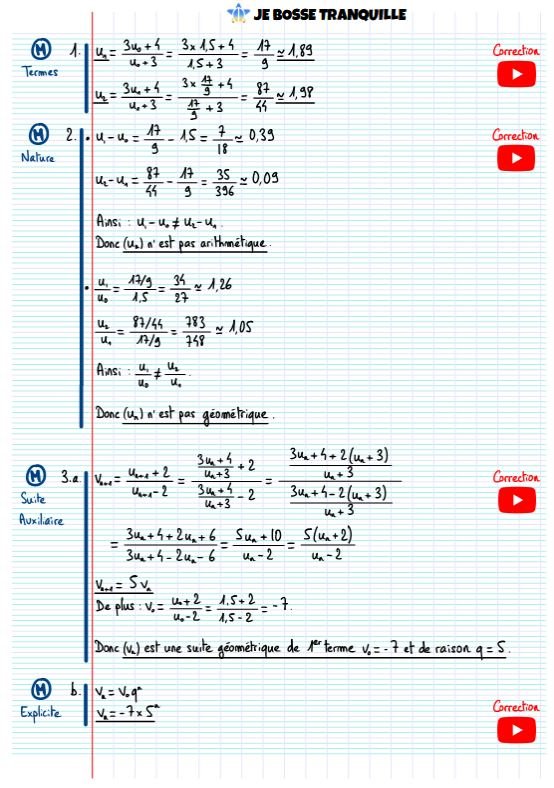 JE BOSSE TRANQUILLE
M Termes 1. u₁ = (3u₀ + 4)/(u₀ + 3) = (3 × 1,5 + 4)/(1,5 + 3) = 17/9 ≃ 1,89 Correction
u₂ = (3u₁ + 4)/(u₁ + 3) = (3 × 17/9 + 4)/(17/9 + 3) = 87/44 ≃ 1,98
M Nature 2. • u₁ - u₀ = 17/9 - 1,5 = 7/18 ≃ 0,39 Correction
u₂ - u₁ = 87/44 - 17/9 = 35/396 ≃ 0,09
Ainsi : u₁ - u₀ ≠ u₂ - u₁.
Donc (uₙ) n'est pas arithmétique.
• u₁/u₀ = (17/9)/1,5 = 34/27 ≃ 1,26
u₂/u₁ = (87/44)/(17/9) = 783/748 ≃ 1,05
Ainsi : u₁/u₀ ≠ u₂/u₁.
Donc (uₙ) n'est pas géométrique.
M Suite Auxiliaire 3.a. vₙ₊₁ = (uₙ₊₁ + 2)/(uₙ₊₁ - 2) = ((3uₙ + 4)/(uₙ + 3) + 2)/((3uₙ + 4)/(uₙ + 3) - 2) = ((3uₙ + 4 + 2(uₙ + 3))/(uₙ + 3))/((3uₙ + 4 - 2(uₙ + 3))/(uₙ + 3)) Correction
= (3uₙ + 4 + 2uₙ + 6)/(3uₙ + 4 - 2uₙ - 6) = (5uₙ + 10)/(uₙ - 2) = 5(uₙ + 2)/(uₙ - 2)
vₙ₊₁ = 5vₙ
De plus : v₀ = (u₀ + 2)/(u₀ - 2) = (1,5 + 2)/(1,5 - 2) = -7.
Donc (vₙ) est une suite géométrique de 1er terme v₀ = -7 et de raison q = 5.
M Explicite b. vₙ = v₀qⁿ Correction
vₙ = -7 × 5ⁿ